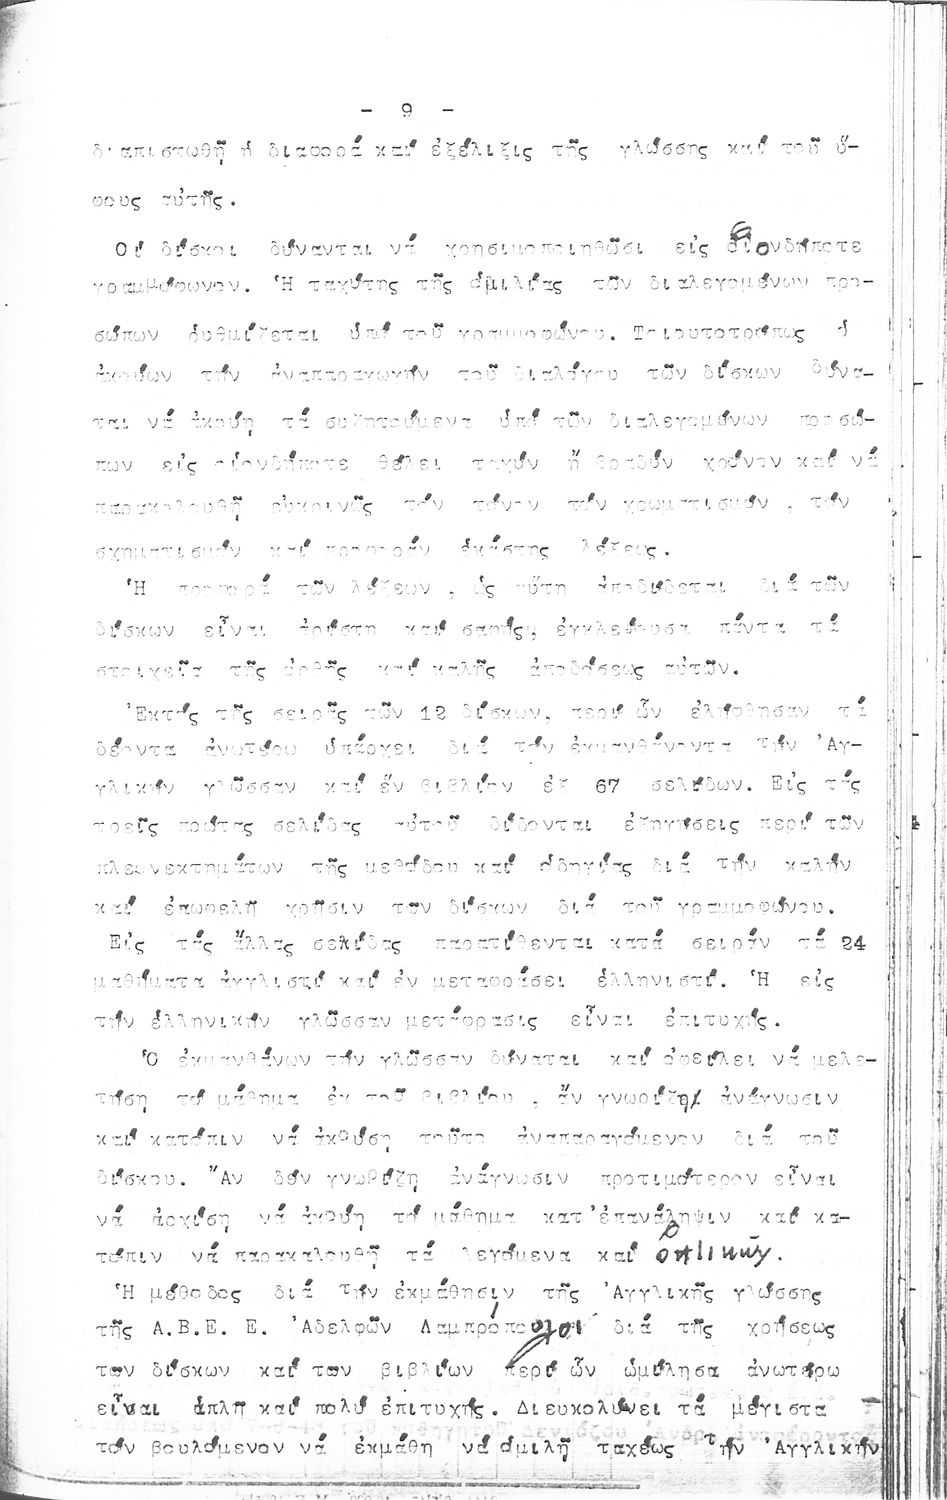 - 9 -
διαπιστωθῇ ἡ διαφορά καί ἐξέλιξις τῆς γλώσσης καί τοῦ ὕ-
φους αὐτῆς.
Οἱ δίσκοι δύνανται νά χρησιμοποιηθῶσι εἰς οἱονδήποτε
γραμμόφωνον. Ἡ ταχύτης τῆς ὁμιλίας τῶν διαλεγομένων προ-
σώπων ρυθμίζεται ὑπό τοῦ γραμμοφώνου. Τοιουτοτρόπως ὁ
ἀκούων τήν ἀναπαραγωγήν τοῦ διαλόγου τῶν δίσκων δύνα-
ται νά ἀκούῃ τά συζητούμενα ὑπό τῶν διαλεγομένων προσώ-
πων εἰς οἱονδήποτε θέλει ταχύν ἤ βραδύν χρόνον καί νά
παρακολουθῇ εὐκρινῶς τόν τόνον τόν χρωματισμόν , τόν
σχηματισμόν καί προφοράν ἑκάστης λέξεως.
Ἡ προφορά τῶν λέξεων , ὡς αὕτη ἀποδίδεται διά τῶν
δίσκων εἶναι ἀρίστη καί σαφής, ἐγκλείουσα πάντα τά
στοιχεῖα τῆς ὀρθῆς καί καλῆς ἀποδόσεως αὐτῶν.
Ἐκτός τῆς σειρᾶς τῶν 12 δίσκων, περί ὧν ἐλήφθησαν τά
δέοντα ἀνωτέρω ὑπάρχει διά τόν ἐκμανθάνοντα τήν Ἀγ-
γλικήν γλῶσσαν καί ἕν βιβλίον ἐξ 67 σελίδων. Εἰς τάς
τρεῖς πρώτας σελίδας αὐτοῦ δίδονται ἐξηγήσεις περί τῶν
πλεονεκτημάτων τῆς μεθόδου καί ὁδηγίας διά τήν καλήν
καί ἐπωφελῆ χρῆσιν των δίσκων διά τοῦ γραμμοφώνου.
Εἰς τάς ἄλλας σελίδας παρατίθενται κατά σειράν τά 24
μαθήματα ἀγγλιστί καί ἐν μεταφράσει ἑλληνιστί. Ἡ εἰς
τήν ἑλληνικήν γλῶσσαν μετάφρασις εἶναι ἐπιτυχής.
Ὁ ἐκμανθάνων τήν γλῶσσαν δύναται καί ὀφείλει νά μελε-
τήσῃ τό μάθημα ἐκ τοῦ βιβλίου , ἄν γνωρίζῃ ἀνάγνωσιν
καί κατόπιν νά ἀκούσῃ τοῦτο ἀναπαραγόμενον διά τοῦ
δίσκου. Ἄν δέν γνωρίζῃ ἀνάγνωσιν προτιμότερον εἶναι
νά ἀρχίσῃ νά ἀκούῃ τό μάθημα κατ' ἐπανάληψιν καί κα-
τόπιν νά παρακαλουθῇ τά λεγόμενα καί ὀπτικῶς.
Ἡ μέθοδος διά τήν ἐκμάθησιν τῆς Ἀγγλικῆς γλώσσης
τῆς Α.Β.Ε. Ε. Ἀδελφῶν Λαμπρόπουλοι διά τῆς χρήσεως
των δίσκων καί των βιβλίων περί ὧν ὡμίλησα ἀνωτέρω
εἶναι ἁπλῆ καί πολύ ἐπιτυχής. Διευκολύνει τά μέγιστα
τόν βουλόμενον νά ἐκμάθη νά ὁμιλῇ ταχέως τήν Ἀγγλικήν